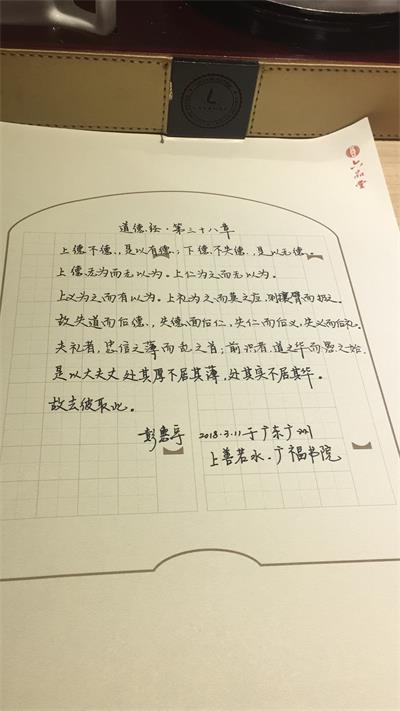 六品堂
道德经·第三十八章
上德不德，是以有德；下德不失德，是以无德。
上德无为而无以为。上仁为之而无以为。
上义为之而有以为。上礼为之而莫之应，则攘臂而扔之。
故失道而后德，失德而后仁，失仁而后义，失义而后礼。
夫礼者，忠信之薄而乱之首；前识者，道之华而愚之始。
是以大丈夫处其厚不居其薄，处其实不居其华。
故去彼取此。
彭惠亭 2018.3.11于广东广州
上善若水·广福书院